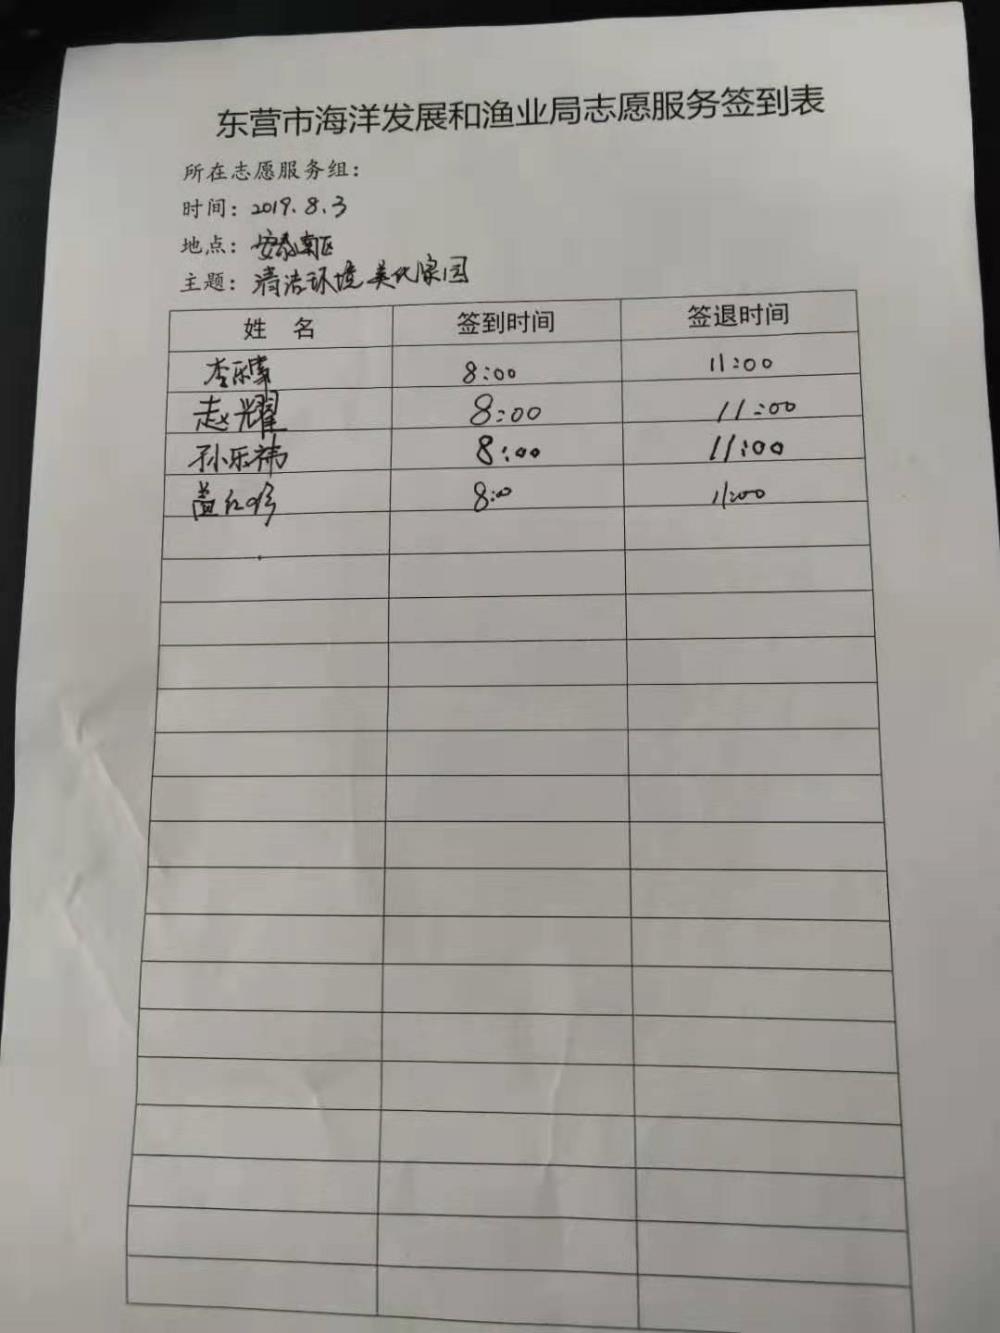 东营市海洋发展和渔业局志愿服务签到表
所在志愿服务组：
时间：2019.8.3
地点：安泰南区
主题：清洁环境 美化家园
姓 名 签到时间 签退时间
李乐 8:00 11:00
赵耀 8:00 11:00
孙乐祎 8:00 11:00
8:00 11:00